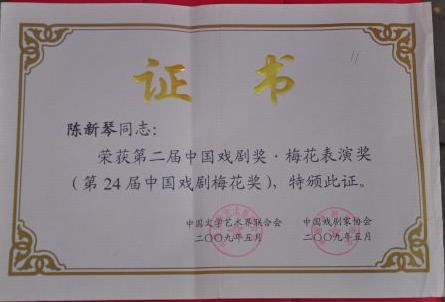 证书
陈新琴同志：
荣获第二届中国戏剧奖·梅花表演奖
（第24届中国戏剧梅花奖），特颁此证。
中国文学艺术界联合会 中国戏剧家协会
二〇〇九年五月 二〇〇九年五月